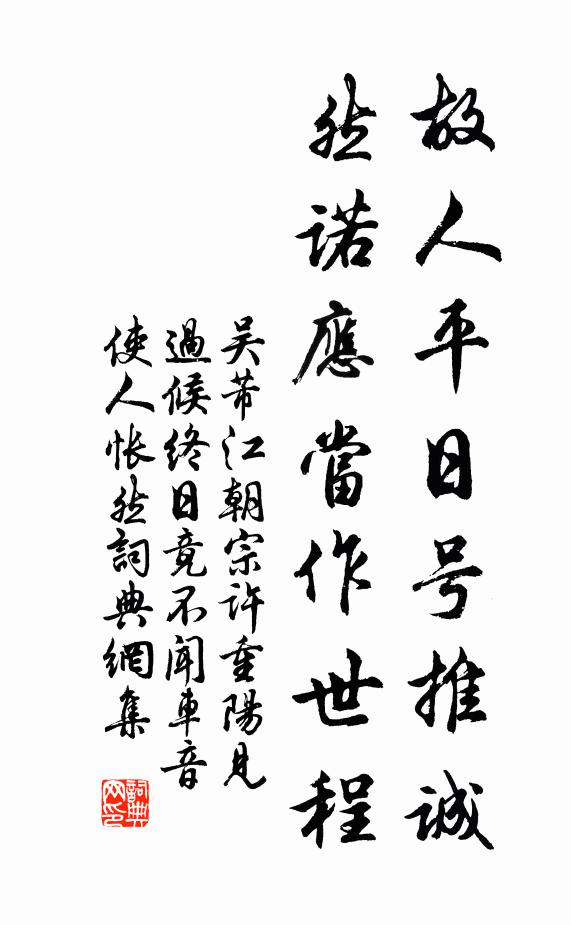 故人平日号推誠
然诺應當作世程
吴芾江朝宗许重陽見
過候终日竟不闻車音
使人怅然詞典網集
詞典网印